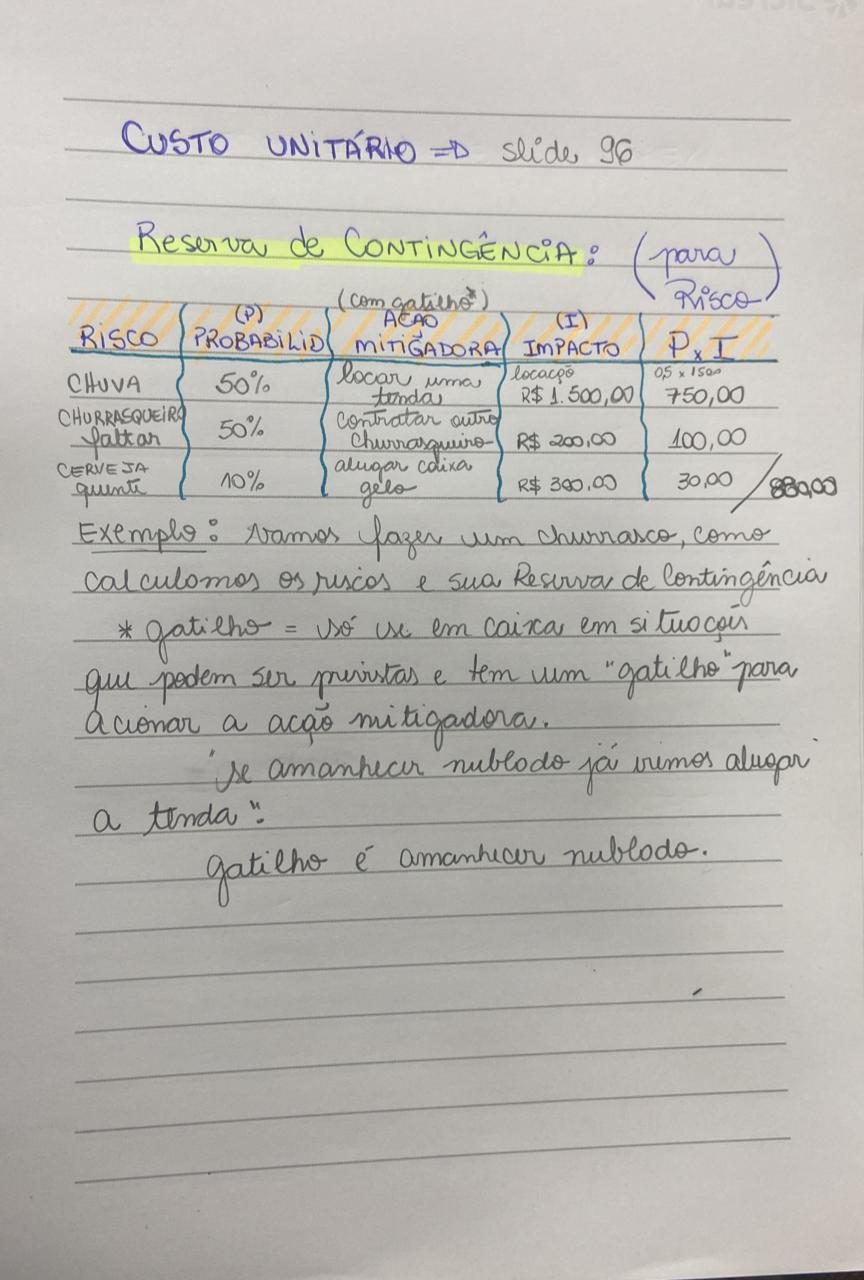 CUSTO UNITÁRIO => slide 96
Reserva de CONTINGÊNCIA: (para Risco)
(com gatilho*)
RISCO (P) PROBABILID AÇÃO MITIGADORA (I) IMPACTO P x I
CHUVA 50% locar uma tenda locação R$ 1.500,00 0,5 x 1500 750,00
CHURRASQUEIRO faltar 50% contratar outro churrasqueiro R$ 200,00 100,00
CERVEJA quente 10% alugar caixa gelo R$ 300,00 30,00 / 880,00
Exemplo: Vamos fazer um churrasco, como
calculamos os riscos e sua Reserva de Contingência
* gatilho = só se em caixa em situações
que podem ser previstas e tem um "gatilho" para
acionar a ação mitigadora.
"se amanhecer nublado já iremos alugar
a tenda".
gatilho é amanhecer nublado.